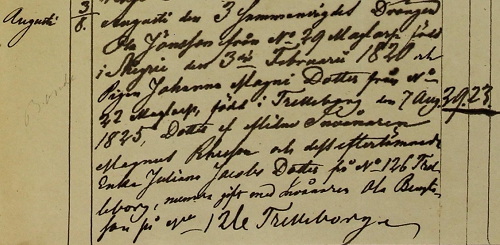 Augusti 3/8. Augusti den 3 Sammanvigdes Drängen
Ola Jönsson från No 29 Maglarp född
i Skegrie den 3die Februarii 1820 och
Pigan Johanna Magni Dotter från No
22 Maglarp, född i Trelleborg den 7 Aug. 29. 23.
1825, Dotter af
Magnus och dess efterlämnade
Enka Juliana Jacobs Dotter på No 126 Trel-
leborg, numera gift med Ola Bengts-
son på No 126 Trelleborg